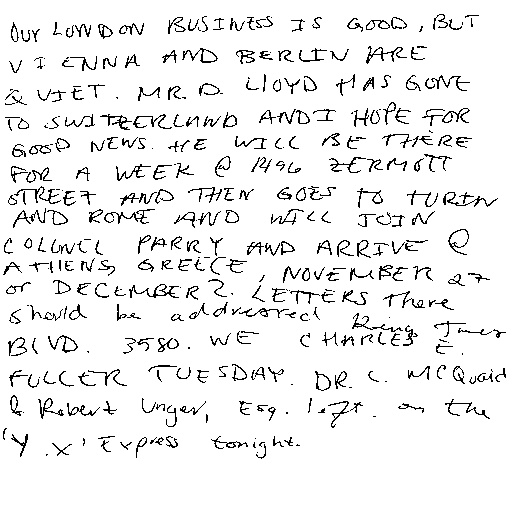 OUR LONDON BUSINESS IS GOOD, BUT
VIENNA AND BERLIN ARE
QUIET. MR. D. LLOYD HAS GONE
TO SWITZERLAND AND I HOPE FOR
GOOD NEWS. HE WILL BE THERE
FOR A WEEK @ 1496 ZERMOTT
STREET AND THEN GOES TO TURIN
AND ROME AND WILL JOIN
COLONEL PARRY AND ARRIVE @
ATHENS, GREECE, NOVEMBER 27
or DECEMBER 2. LETTERS there
should be addressed King James
BLVD. 3580. WE CHARLES E.
FULLER TUESDAY. DR. L. MCQuaid
& Robert Unger, Esq. left on the
'Y.X' Express tonight.